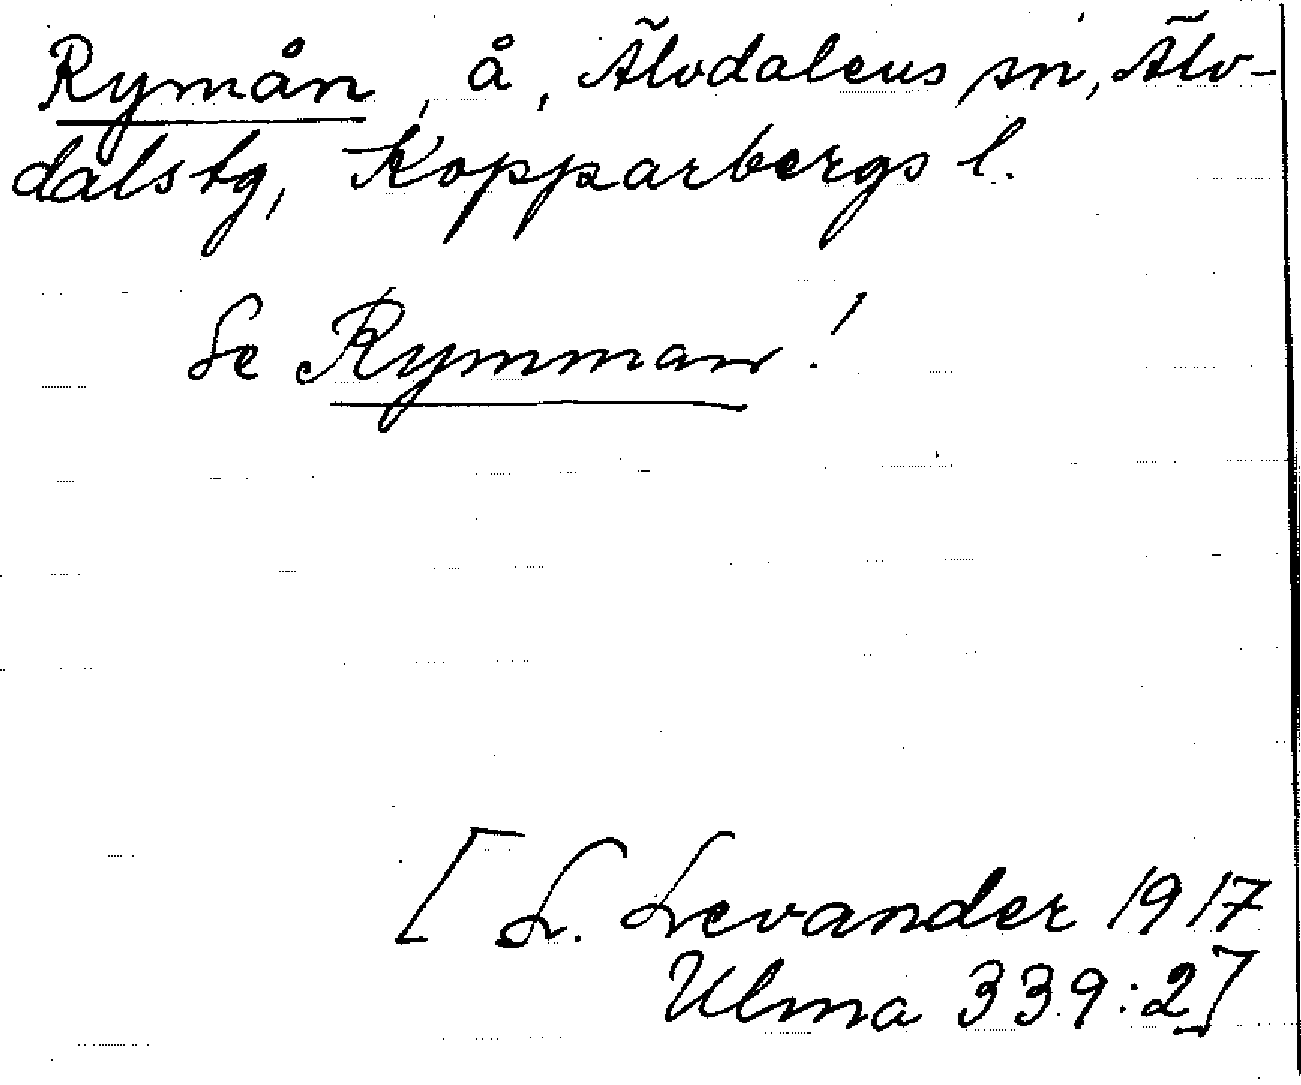 Rymån, å, Älvdalens sn, Älv-
dals tg, Kopparbergs l.
Se Rymman!
[L. Levander 1917
Ulma 339:2]